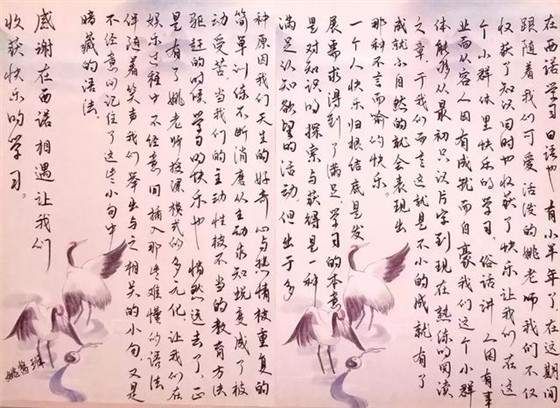 在西诺学习日语也有小半年了，在这期间
跟随着我们可爱活泼的姚老师我们不仅
收获了知识同时也收获了快乐让我们在这
个小群体里快乐的学习。俗话讲，人因有事
业而从容人因有成就而自豪我们这个小群
体能够从最初只识片字到现在熟练的阅读
文章，于我们而言这就是不小的成就有了
成就小自然的就会表现出
那种不言而喻的快乐。
一个人快乐归根结底是发
展要求得到了满足，学习的本意
是对知识的探索与获得是一种
满足认知欲望的活动，但出于多
种原因我们天生的好奇心与热情被重复的
简单训练不断消磨从主动求知蜕变成了被
动受苦当我们的主动性被不当的教育方法
驱赶的时候学习的快乐也悄然远去了。正
是有了姚老师授课模式的多元化，让我们在
娱乐过程中不经意间插入那些难懂的语法，
伴随着笑声我们举出与之相关的小句又是
不经意间记住了这些小句中
暗藏的语法。
感谢在西诺相遇让我们
收获快乐的学习。